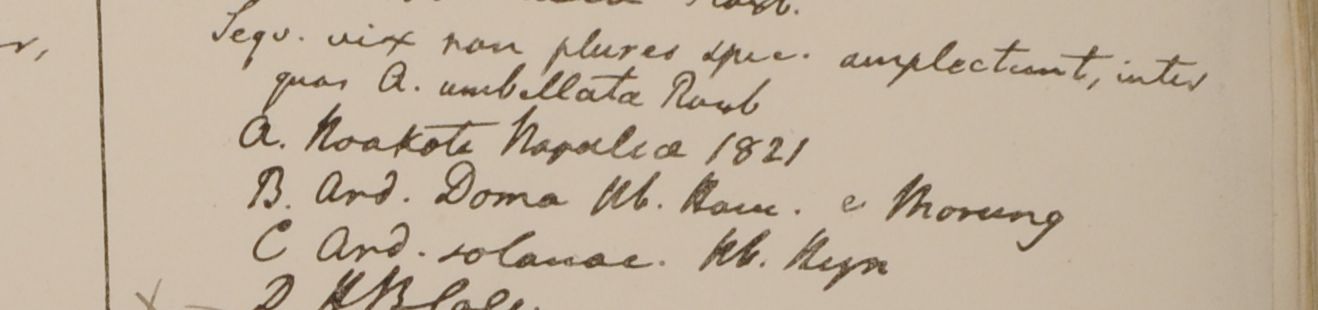 Seqv. vix non plures spec. amplectunt, inter
quas A. umbellata Roxb
A. Noakote Napalia 1821
B. Ard. Doma Hb. Ham. e Morung
C Ard. solanac. Hb. Heyn
D HB